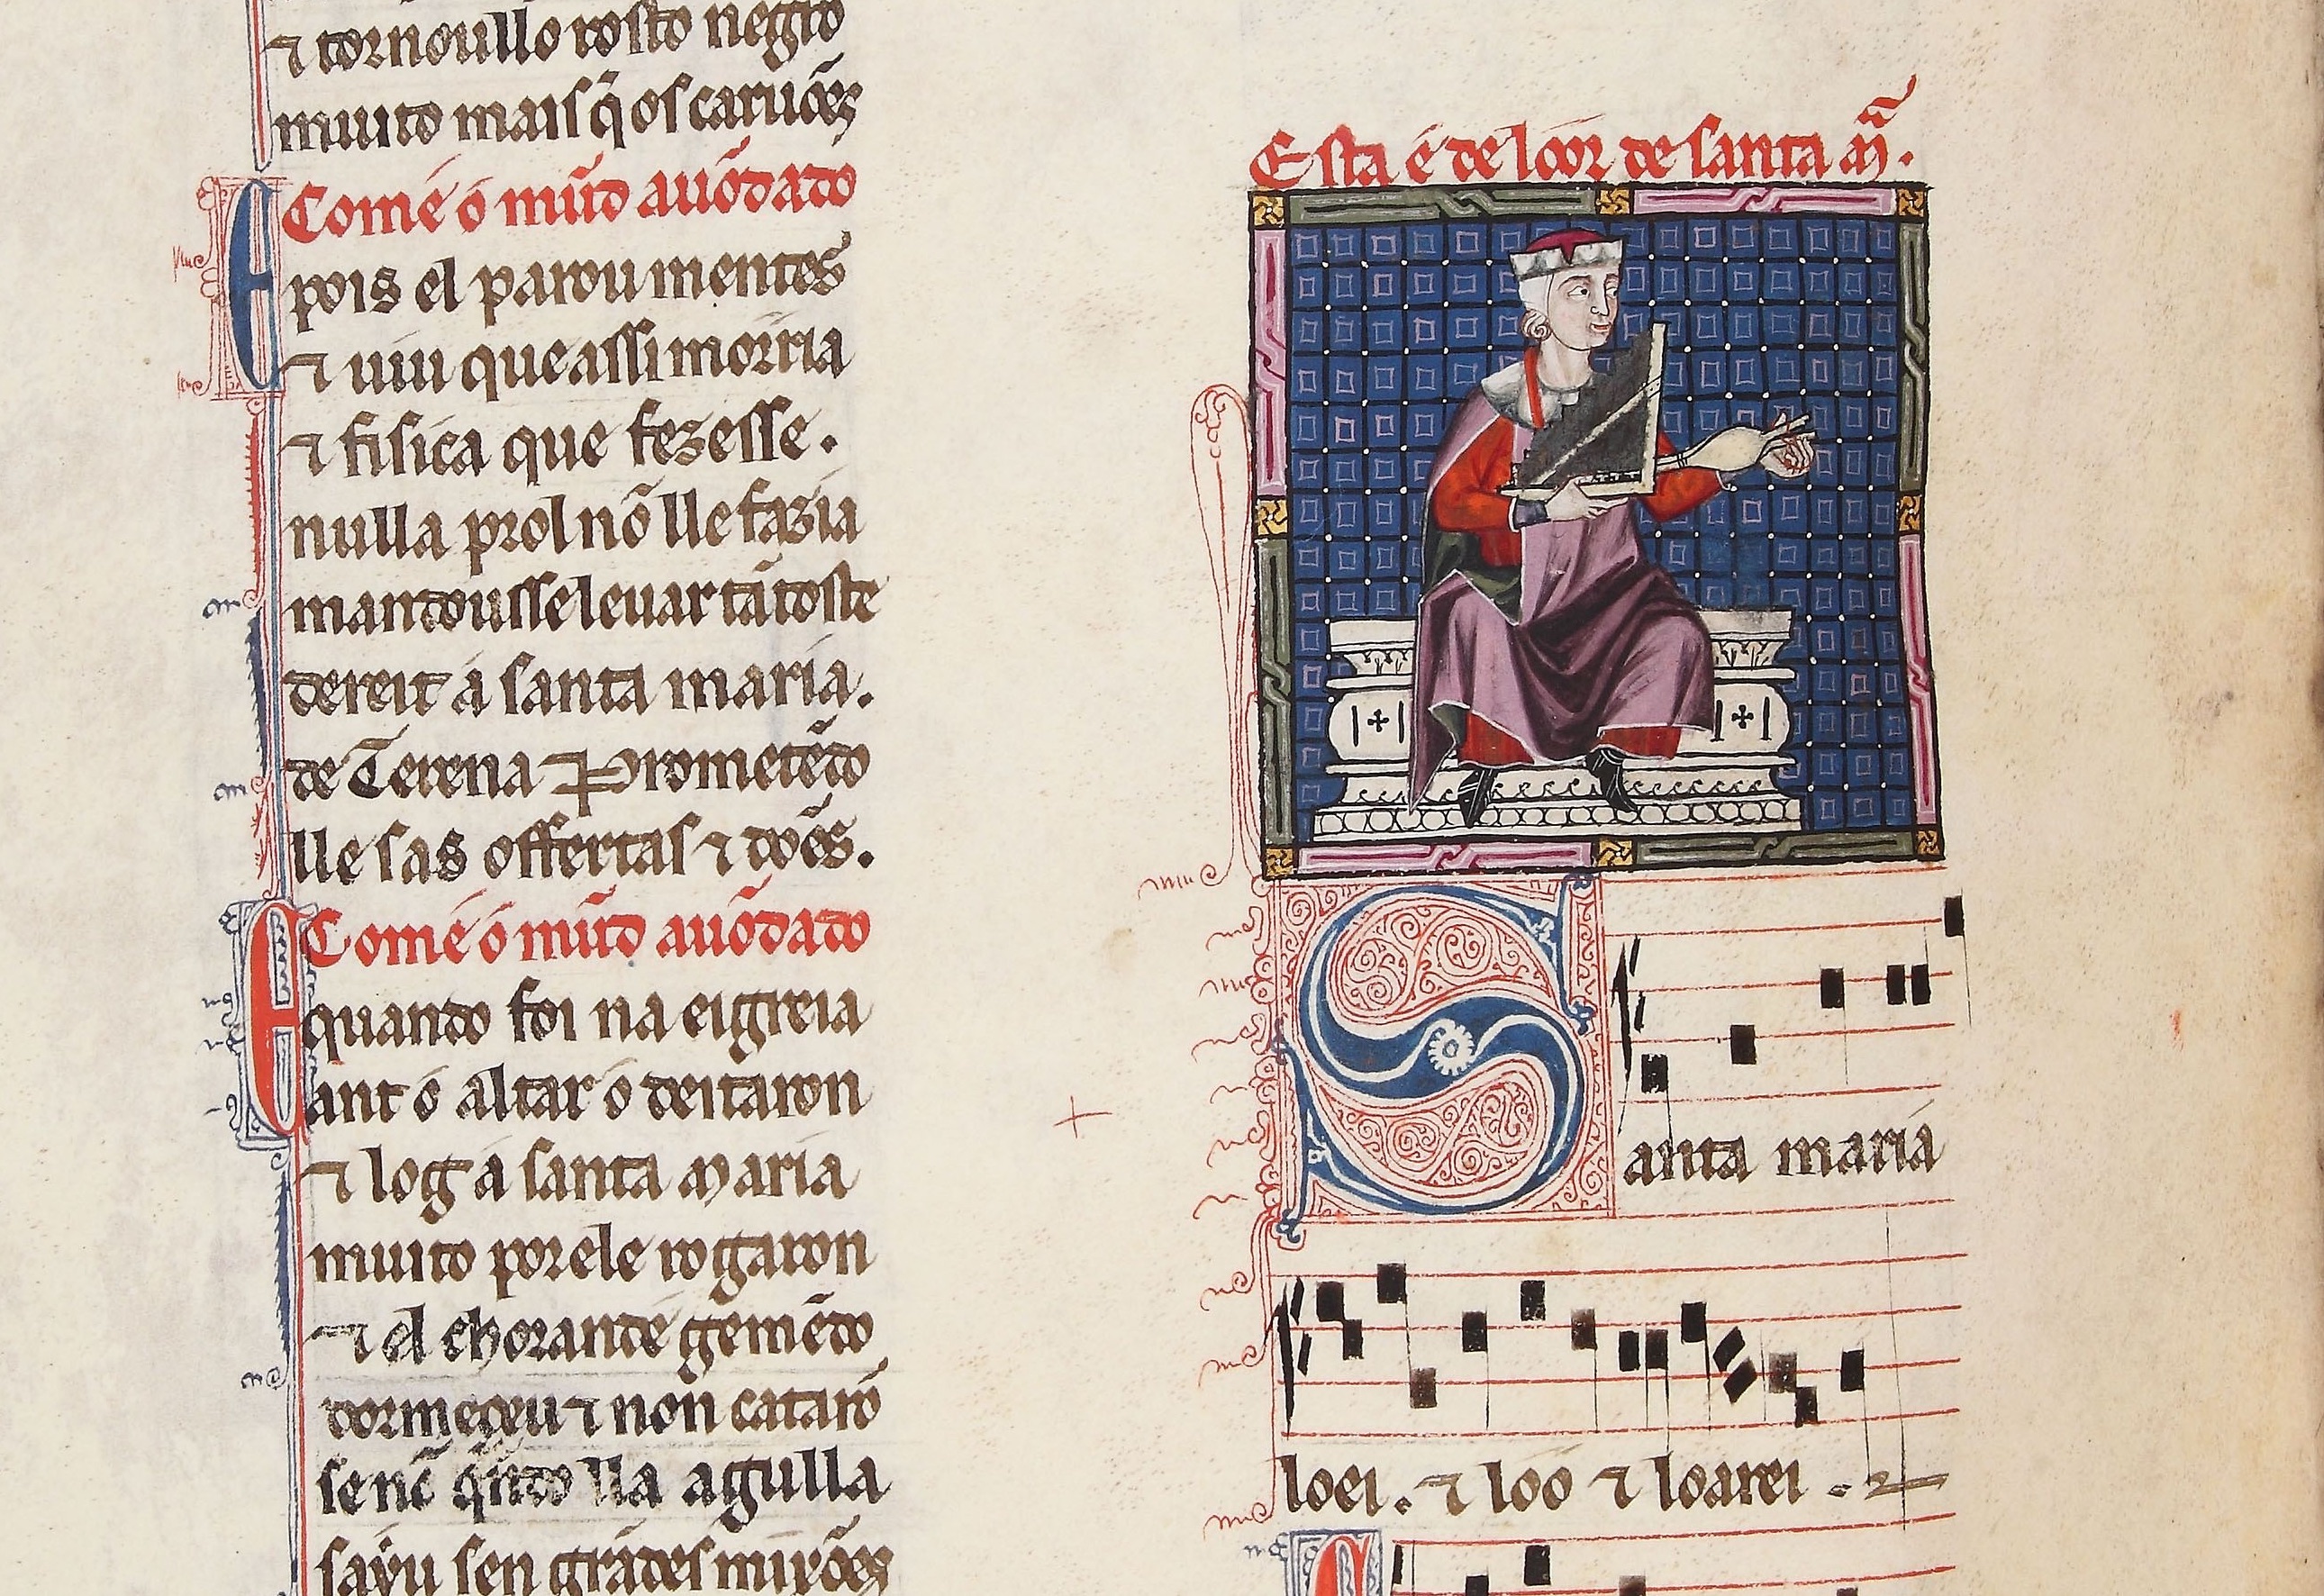 ⁊ tornoullo rosto negro
muito mais q̃ os caruões
Come é o mũd auõdado
E pois el parou mentes
⁊ uiu que assi morria
⁊ fisica que fezesse.
nulla prol nõ lle fazia
mandousse leuar tã toste
dereit á santa maria.
de Terena ⁊ Prometẽdo
lle sas offertas ⁊ dões.
Come é o mũd auõdado
E quando foi na eigreia
ant o altar o deitaron
⁊ log á santa Maria
muito por ele rogaron
⁊ el chorand é gemẽdo
dormeçeu ⁊ non catarõ
senõ qũdo lla agulla
sayu sen grãdes mixões
Esta é de loor de santa Mã.
Santa maria
loei. ⁊ loo ⁊ loarei.